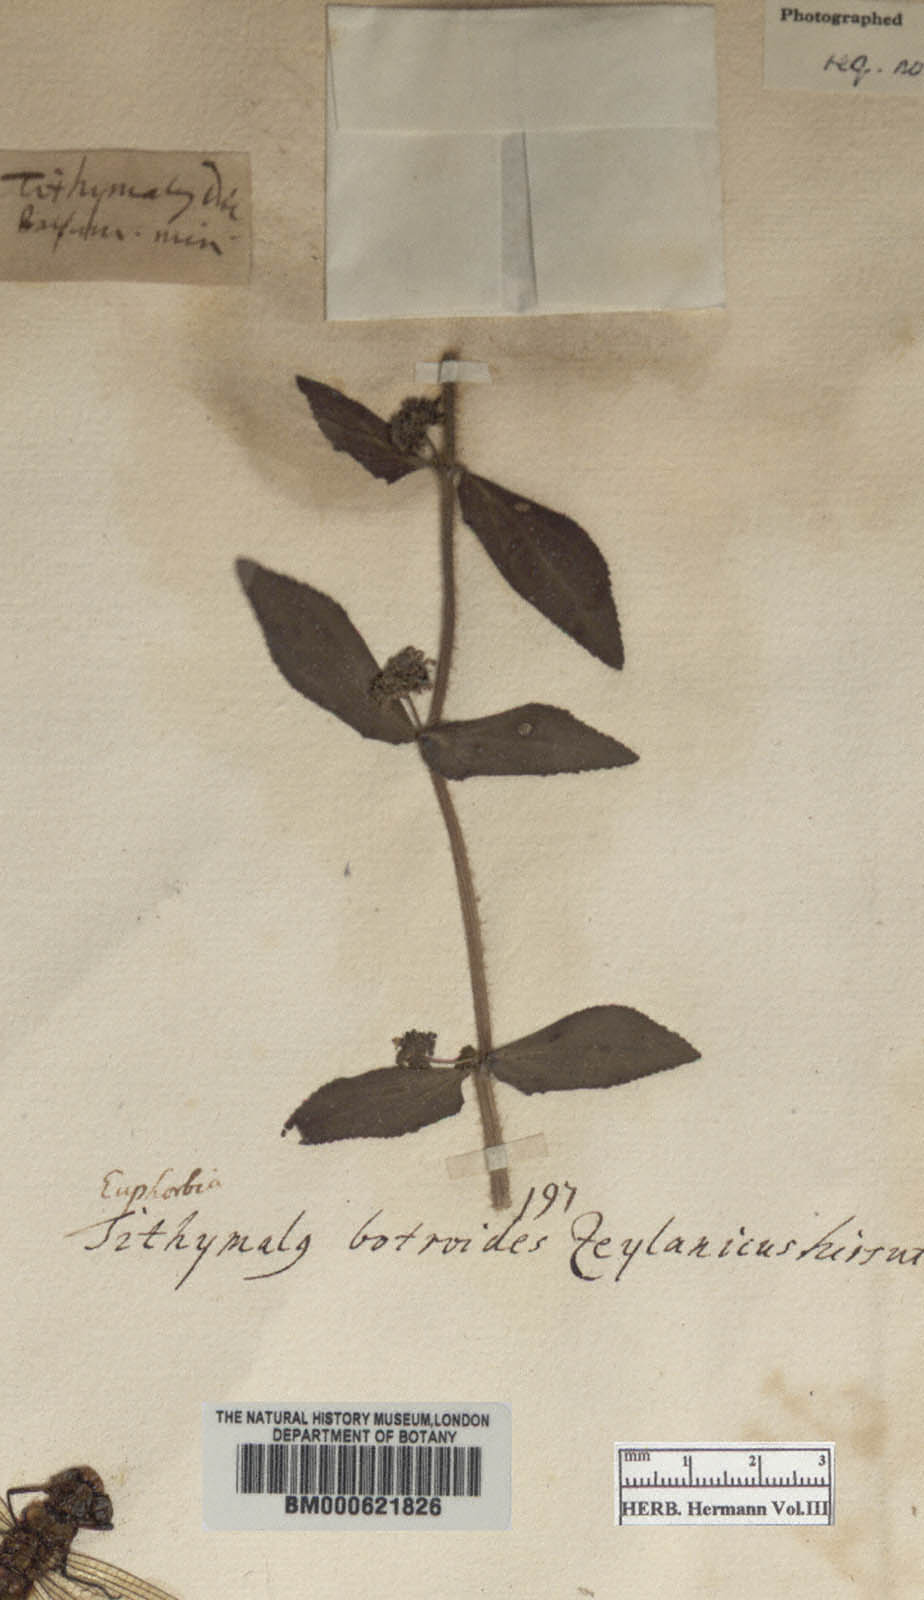 Photographed
Tithymalus
Euphorbia
197
Tithymalg botroides Zeylanicus hirsut
THE NATURAL HISTORY MUSEUM,LONDON
DEPARTMENT OF BOTANY
BM000621826
mm 1 2 3
HERB. Hermann Vol.III